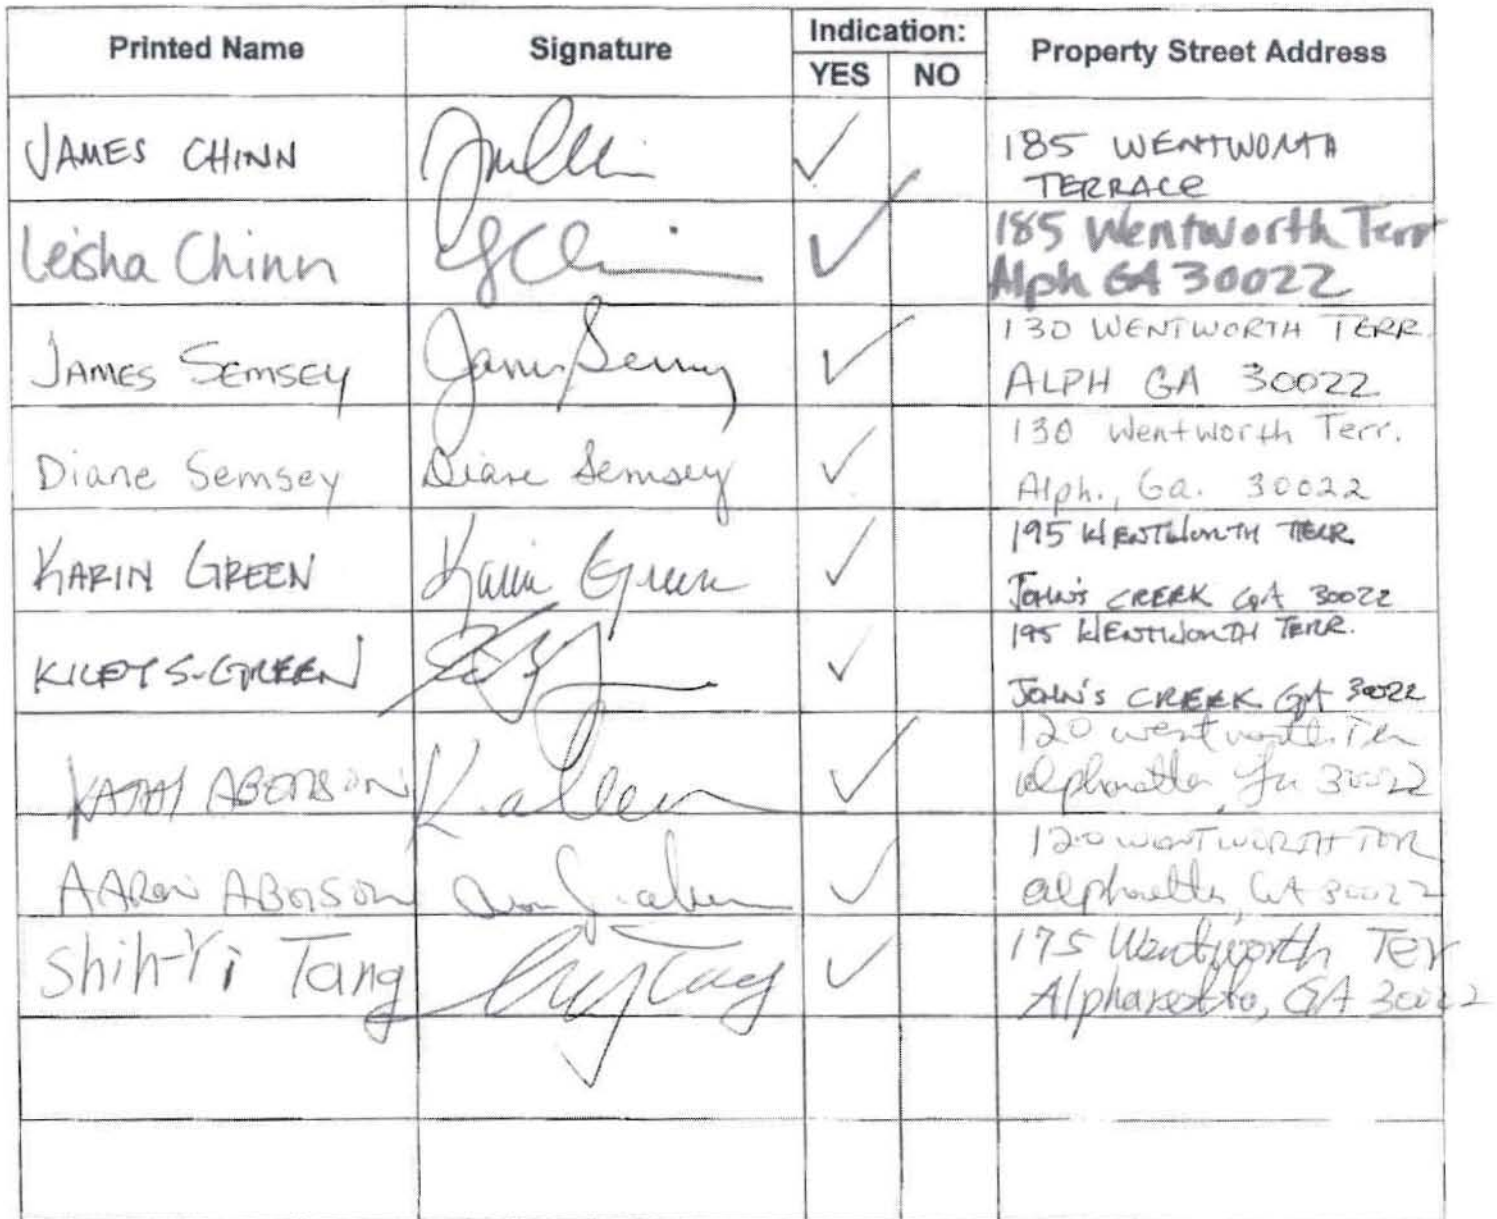 Printed Name Signature Indication: Property Street Address
YES NO
JAMES CHINN 185 WENTWORTH
TERRACE
Leisha Chinn 185 Wentworth Terr
Alph GA 30022
JAMES SEMSEY 130 WENTWORTH TERR.
ALPH GA 30022
Diane Semsey Diane Semsey 130 Wentworth Terr.
Alph., Ga. 30022
KARIN GREEN Karin Green 195 WENTWORTH TERR
JOHN'S CREEK GA 30022
S. GREEN 195 WENTWORTH TERR.
JOHN'S CREEK GA 30022
KATHY 120 Ter
alpharetta, Ga 30022
AARON 120 WENTWORTH TER
alpharetta, GA 30022
Shih-Yi Tang 175 Wentworth Ter
Alpharetta, GA 30022